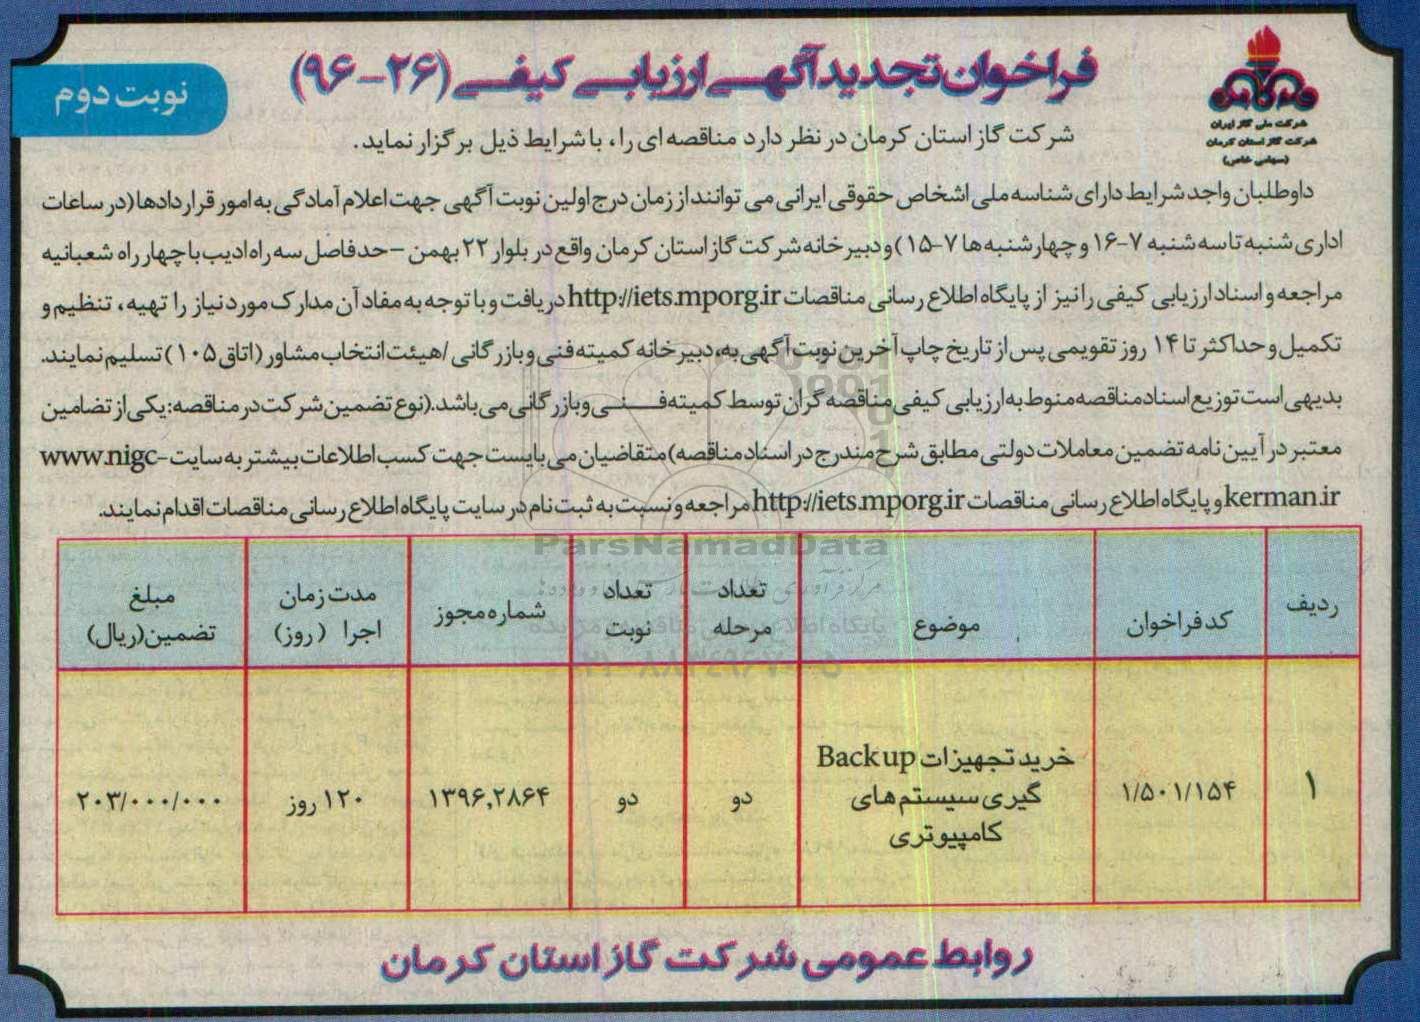 فراخوان تجدید آگهی ارزیابی کیفی (۲۶-۹۶)
نوبت دوم
شرکت ملی گاز ایران
شرکت گاز استان کرمان
(سهامی خاص)
شرکت گاز استان کرمان در نظر دارد مناقصه ای را، با شرایط ذیل برگزار نماید.
داوطلبان واجد شرایط دارای شناسه ملی اشخاص حقوقی ایرانی می توانند از زمان درج اولین نوبت آگهی جهت اعلام آمادگی به امور قراردادها (در ساعات
اداری شنبه تا سه شنبه ۷-۱۶ و چهارشنبه ها ۷-۱۵) و دبیرخانه شرکت گاز استان کرمان واقع در بلوار ۲۲ بهمن – حدفاصل سه راه ادیب با چهار راه شعبانیه
مراجعه و اسناد ارزیابی کیفی را نیز از پایگاه اطلاع رسانی مناقصات http://iets.mporg.ir دریافت و با توجه به مفاد آن مدارک مورد نیاز را تهیه، تنظیم و
تکمیل و حداکثر تا ۱۴ روز تقویمی پس از تاریخ چاپ آخرین نوبت آگهی به، دبیرخانه کمیته فنی و بازرگانی /هیئت انتخاب مشاور (اتاق ۱۰۵) تسلیم نمایند.
بدیهی است توزیع اسناد مناقصه منوط به ارزیابی کیفی مناقصه گران توسط کمیته فنی و بازرگانی می باشد.(نوع تضمین شرکت در مناقصه: یکی از تضامین
معتبر در آیین نامه تضمین معاملات دولتی مطابق شرح مندرج در اسناد مناقصه) متقاضیان می بایست جهت کسب اطلاعات بیشتر به سایت www.nigc-
kerman.ir و پایگاه اطلاع رسانی مناقصات http://iets.mporg.ir مراجعه و نسبت به ثبت نام در سایت پایگاه اطلاع رسانی مناقصات اقدام نمایند.
ParsNamadData
ردیف کد فراخوان موضوع تعداد مرحله تعداد نوبت شماره مجوز مدت زمان اجرا (روز) مبلغ تضمین(ریال)
۱ ۱/۵۰۱/۱۵۴ خرید تجهیزات Backup گیری سیستم های کامپیوتری دو دو ۱۳۹۶,۲۸۶۴ ۱۲۰ روز ۲۰۳/۰۰۰/۰۰۰
روابط عمومی شرکت گاز استان کرمان